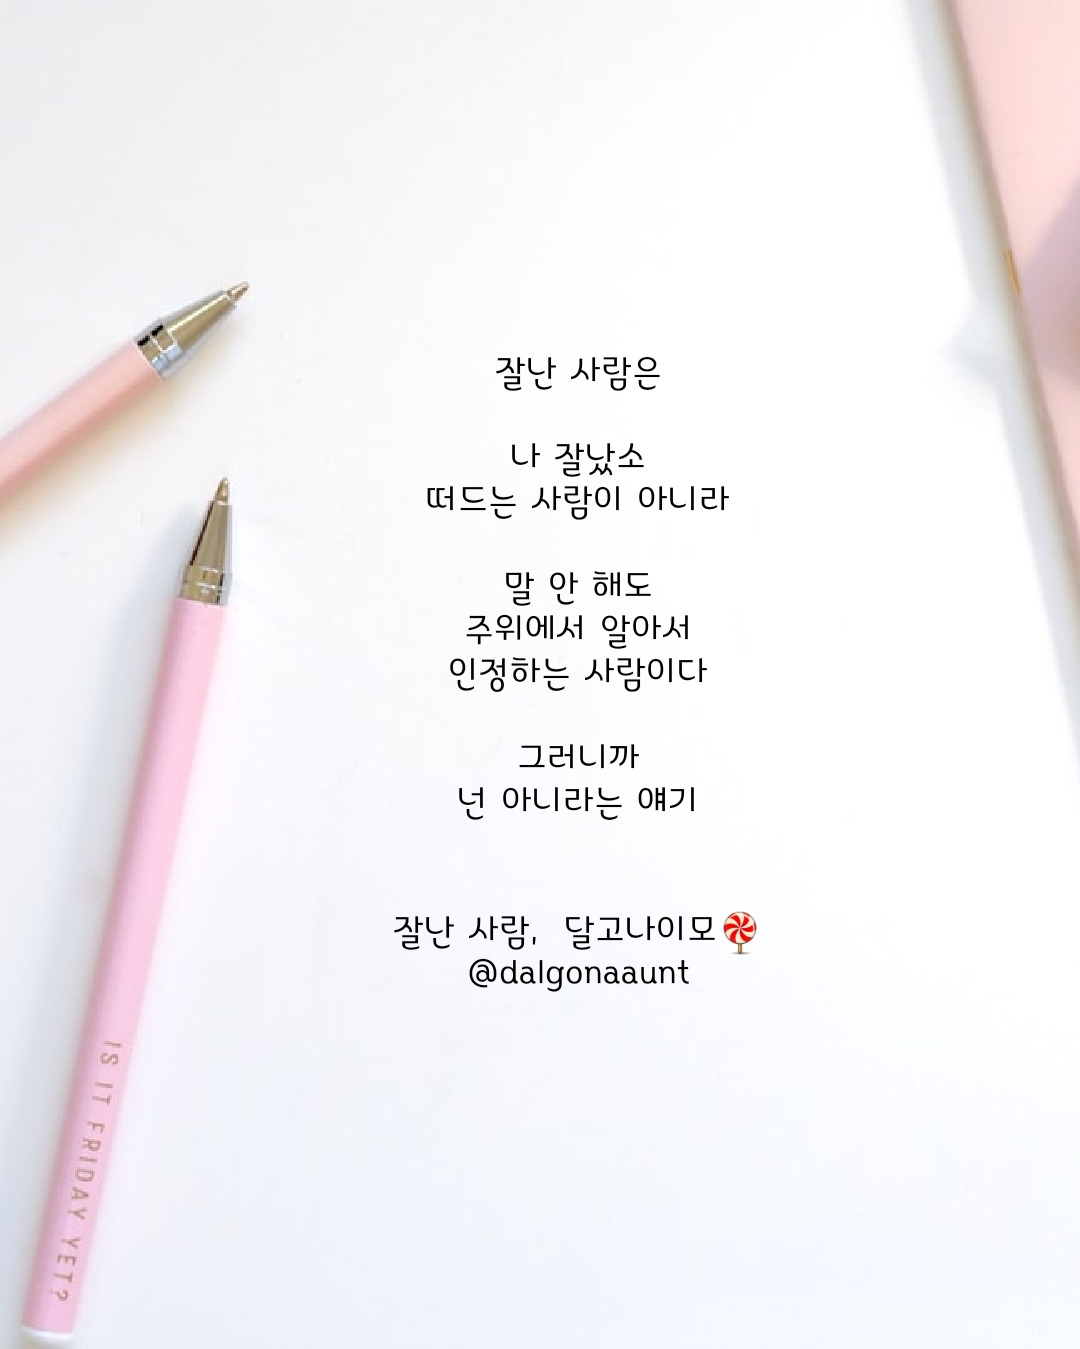 잘난 사람은
나 잘났소
떠드는 사람이 아니라
말 안 해도
주위에서 알아서
인정하는 사람이다
그러니까
넌 아니라는 얘기
잘난 사람, 달고나이모🍭
@dalgonaaunt
IS IT FRIDAY YET?